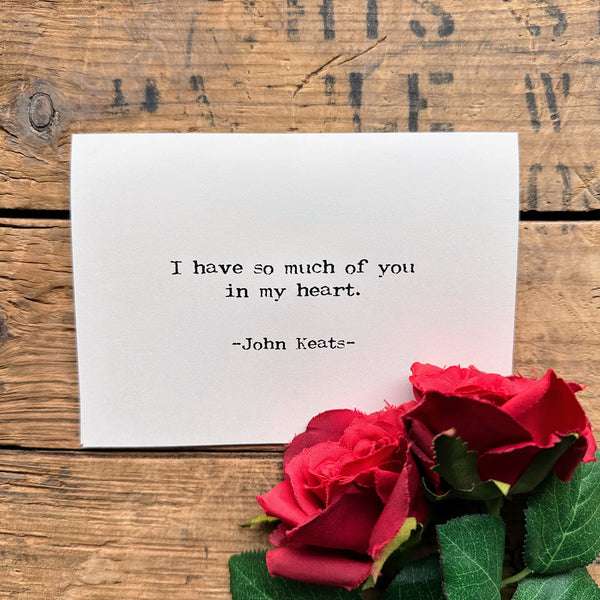 I have so much of you
in my heart.
-John Keats-